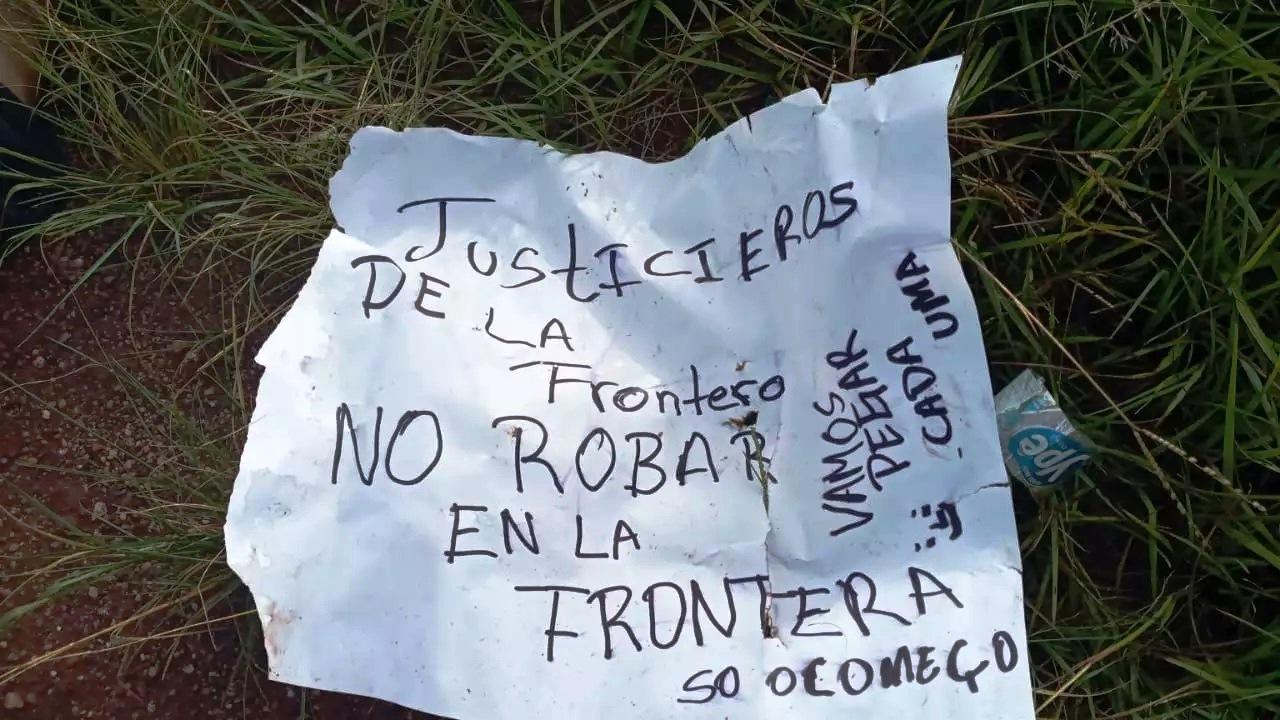 JUSTICIEROS
DE LA
Frontero
NO ROBAR
EN LA
FRONTERA
SO OCOMEÇO
VAMOS
PEGAR
CADA UMA
Ype